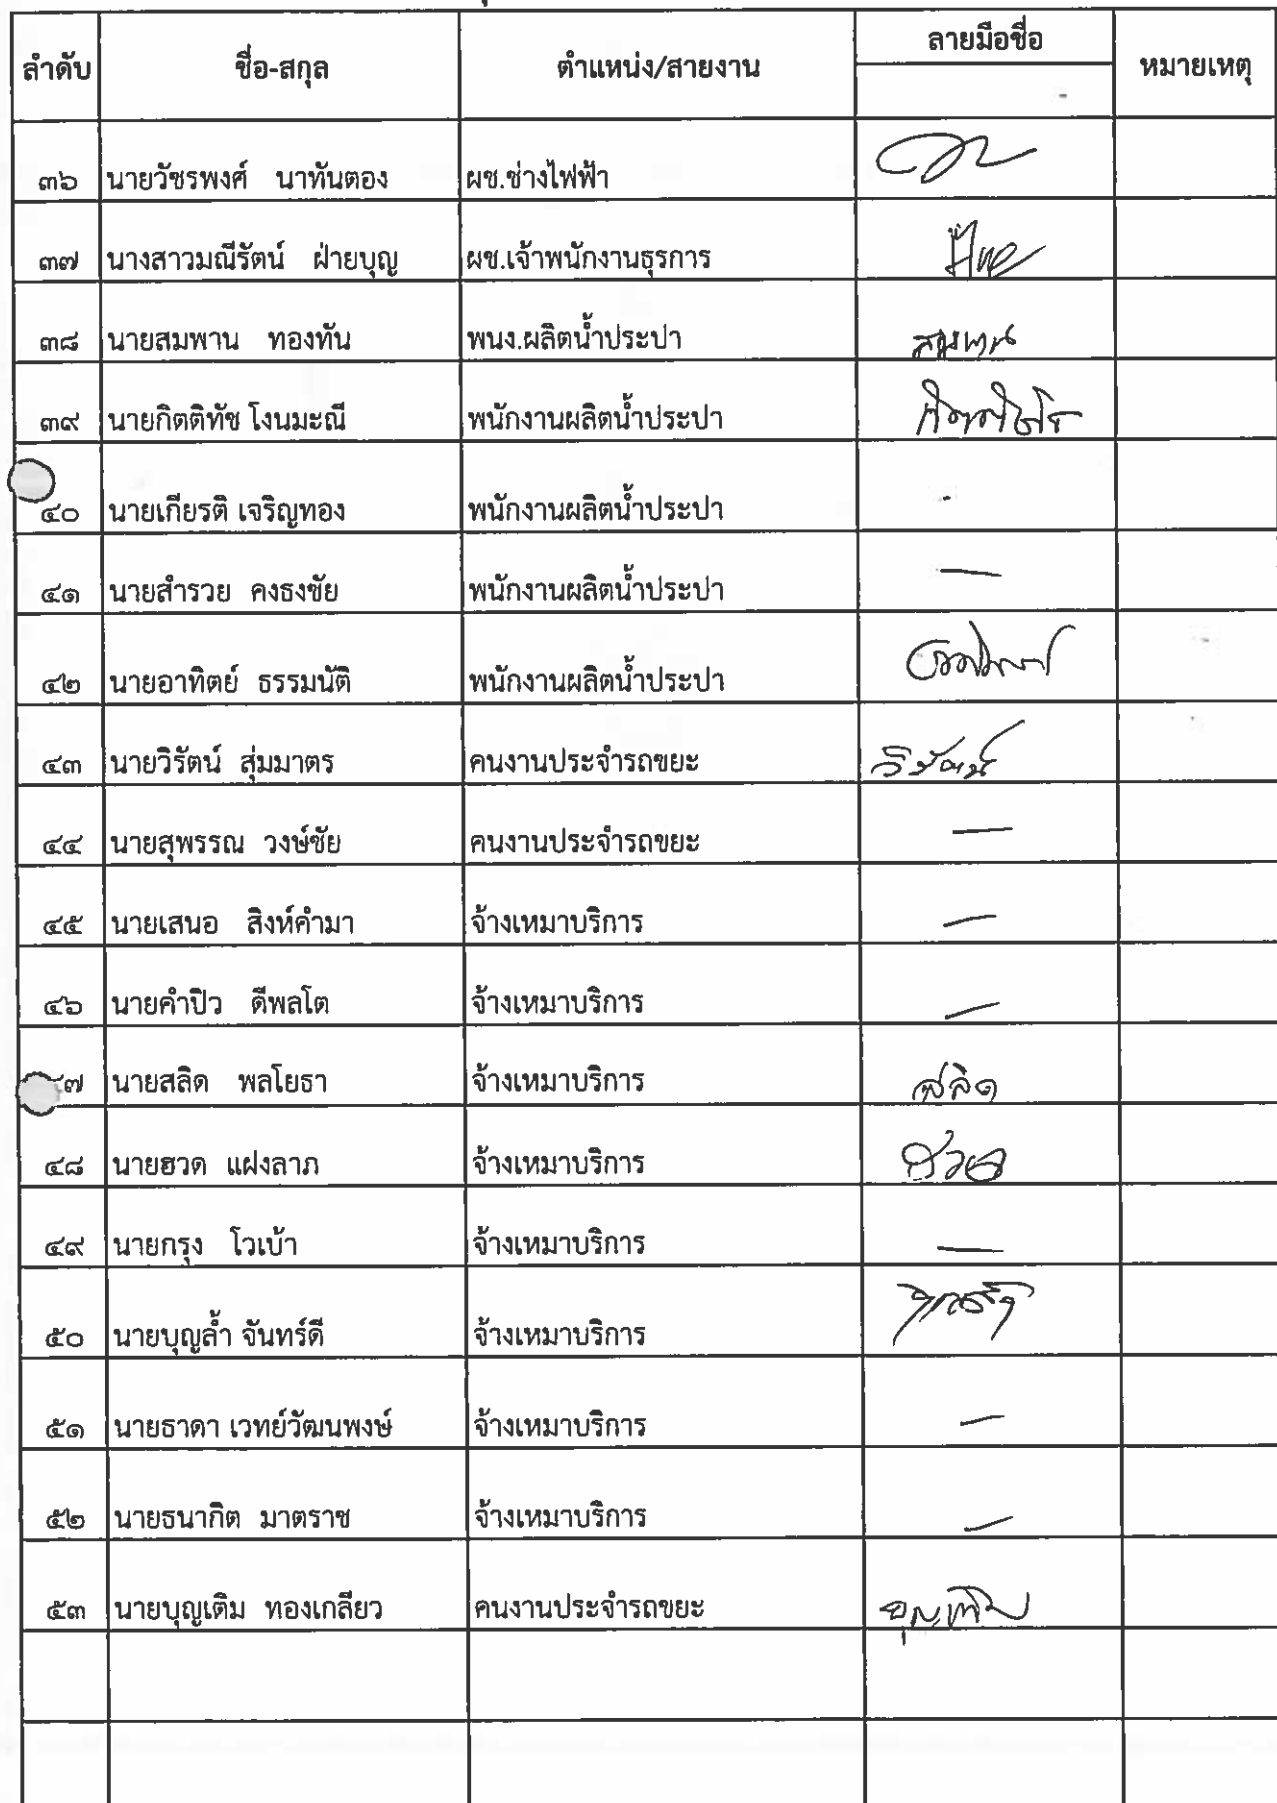 ลำดับ ชื่อ-สกุล ตำแหน่ง/สายงาน ลายมือชื่อ หมายเหตุ
๓๖ นายวัชรพงศ์ นาทันตอง ผช.ช่างไฟฟ้า
๓๗ นางสาวมณีรัตน์ ฝ่ายบุญ ผช.เจ้าพนักงานธุรการ
๓๘ นายสมพาน ทองทัน พนง.ผลิตน้ำประปา สมพาน
๓๙ นายกิตติทัช โงนมะณี พนักงานผลิตน้ำประปา
๔๐ นายเกียรติ เจริญทอง พนักงานผลิตน้ำประปา
๔๑ นายสำรวย คงธงชัย พนักงานผลิตน้ำประปา —
๔๒ นายอาทิตย์ ธรรมนัติ พนักงานผลิตน้ำประปา
๔๓ นายวิรัตน์ สุ่มมาตร คนงานประจำรถขยะ วิรัตน์
๔๔ นายสุพรรณ วงษ์ชัย คนงานประจำรถขยะ —
๔๕ นายเสนอ สิงห์คำมา จ้างเหมาบริการ —
๔๖ นายคำปิว ดีพลโต จ้างเหมาบริการ —
๗ นายสลิด พลโยธา จ้างเหมาบริการ สลิด
๔๘ นายฮวด แฝงลาภ จ้างเหมาบริการ ฮวด
๔๙ นายกรุง โวเบ้า จ้างเหมาบริการ —
๕๐ นายบุญล้ำ จันทร์ดี จ้างเหมาบริการ
๕๑ นายธาดา เวทย์วัฒนพงษ์ จ้างเหมาบริการ —
๕๒ นายธนากิต มาตราช จ้างเหมาบริการ —
๕๓ นายบุญเติม ทองเกลียว คนงานประจำรถขยะ บุญเติม